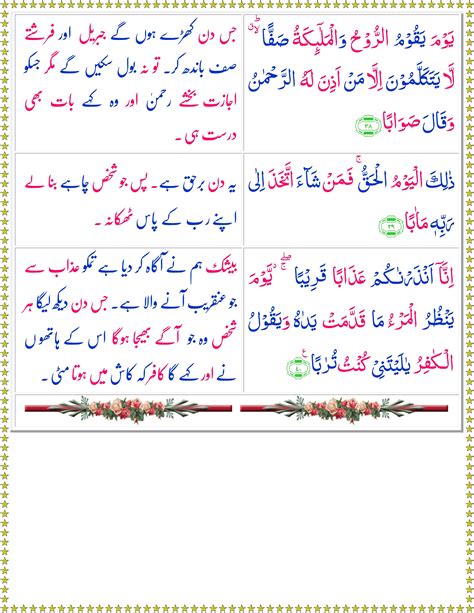 يَوۡمَ يَقُوۡمُ الرُّوۡحُ وَالۡمَلٰٓٮِٕكَةُ صَفًّا ۙۗ
لَّا يَتَكَلَّمُوۡنَ اِلَّا مَنۡ اَذِنَ لَهُ الرَّحۡمٰنُ
وَقَالَ صَوَابًا ﴿۳۸﴾
جس دن کھڑے ہوں گے جبریل اور فرشتے
صف باندھ کر۔ تو نہ بول سکیں گے مگر جسکو
اجازت بخشے رحمن اور وہ کہے بات بھی
درست ہی۔
ذٰلِكَ الۡيَوۡمُ الۡحَـقُّ ۚ فَمَنۡ شَآءَ اتَّخَذَ اِلٰى
رَبِّهٖ مَاٰبًا ﴿۳۹﴾
یہ دن برحق ہے۔ پس جو شخص چاہے بنا لے
اپنے رب کے پاس ٹھکانہ۔
اِنَّاۤ اَنۡذَرۡنٰـكُمۡ عَذَابًا قَرِيۡبًا ۖۚ يَّوۡمَ
يَنۡظُرُ الۡمَرۡءُ مَا قَدَّمَتۡ يَدٰهُ وَيَقُوۡلُ
الۡـكٰفِرُ يٰلَيۡتَنِىۡ كُنۡتُ تُرٰبًا ﴿۴۰﴾
بیشک ہم نے آگاہ کر دیا ہے تمکو عذاب سے
جو عنقریب آنے والا ہے۔ جس دن دیکھ لیگا ہر
شخص وہ جو آگے بھیجا ہوگا اس کے ہاتھوں
نے اور کہے گا کافر کہ کاش میں ہوتا مٹی۔